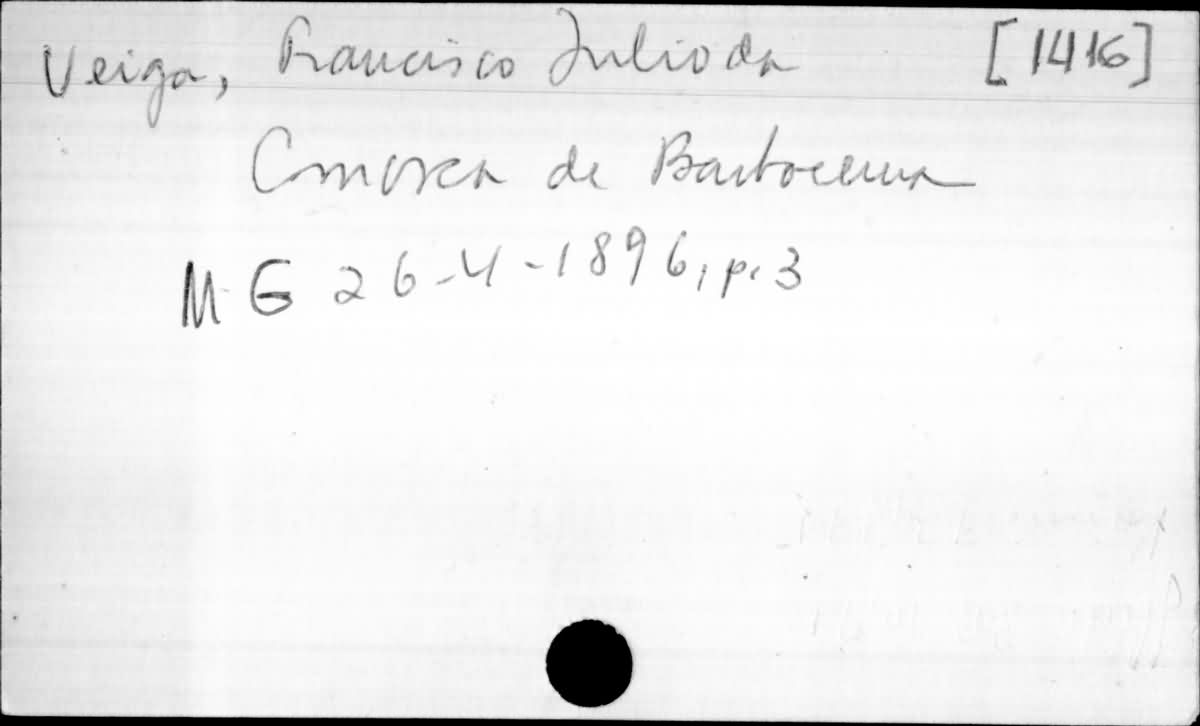 Veiga, Francisco Julio da [1416]
Comarca de Barbacena
MG 26-4-1896, p. 3